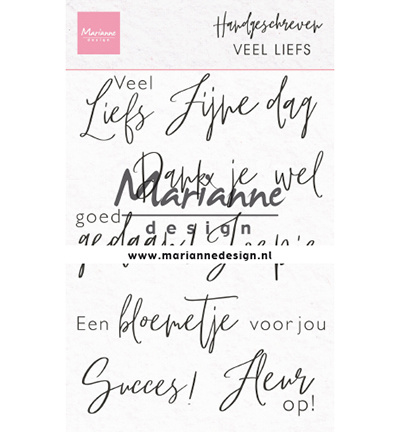 Marianne
design
Handgeschreven
VEEL LIEFS
Veel
Liefs Fijne dag
Dank je wel
Marianne
goed
design
gedaan!
www.mariannedesign.nl
Een bloemetje voor jou
Succes! Fleur
op!